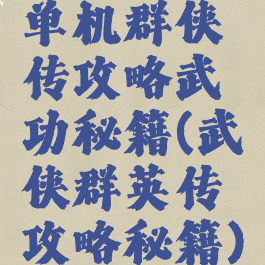 单机群侠
传攻略武
功秘籍(武
侠群英传
攻略秘籍)